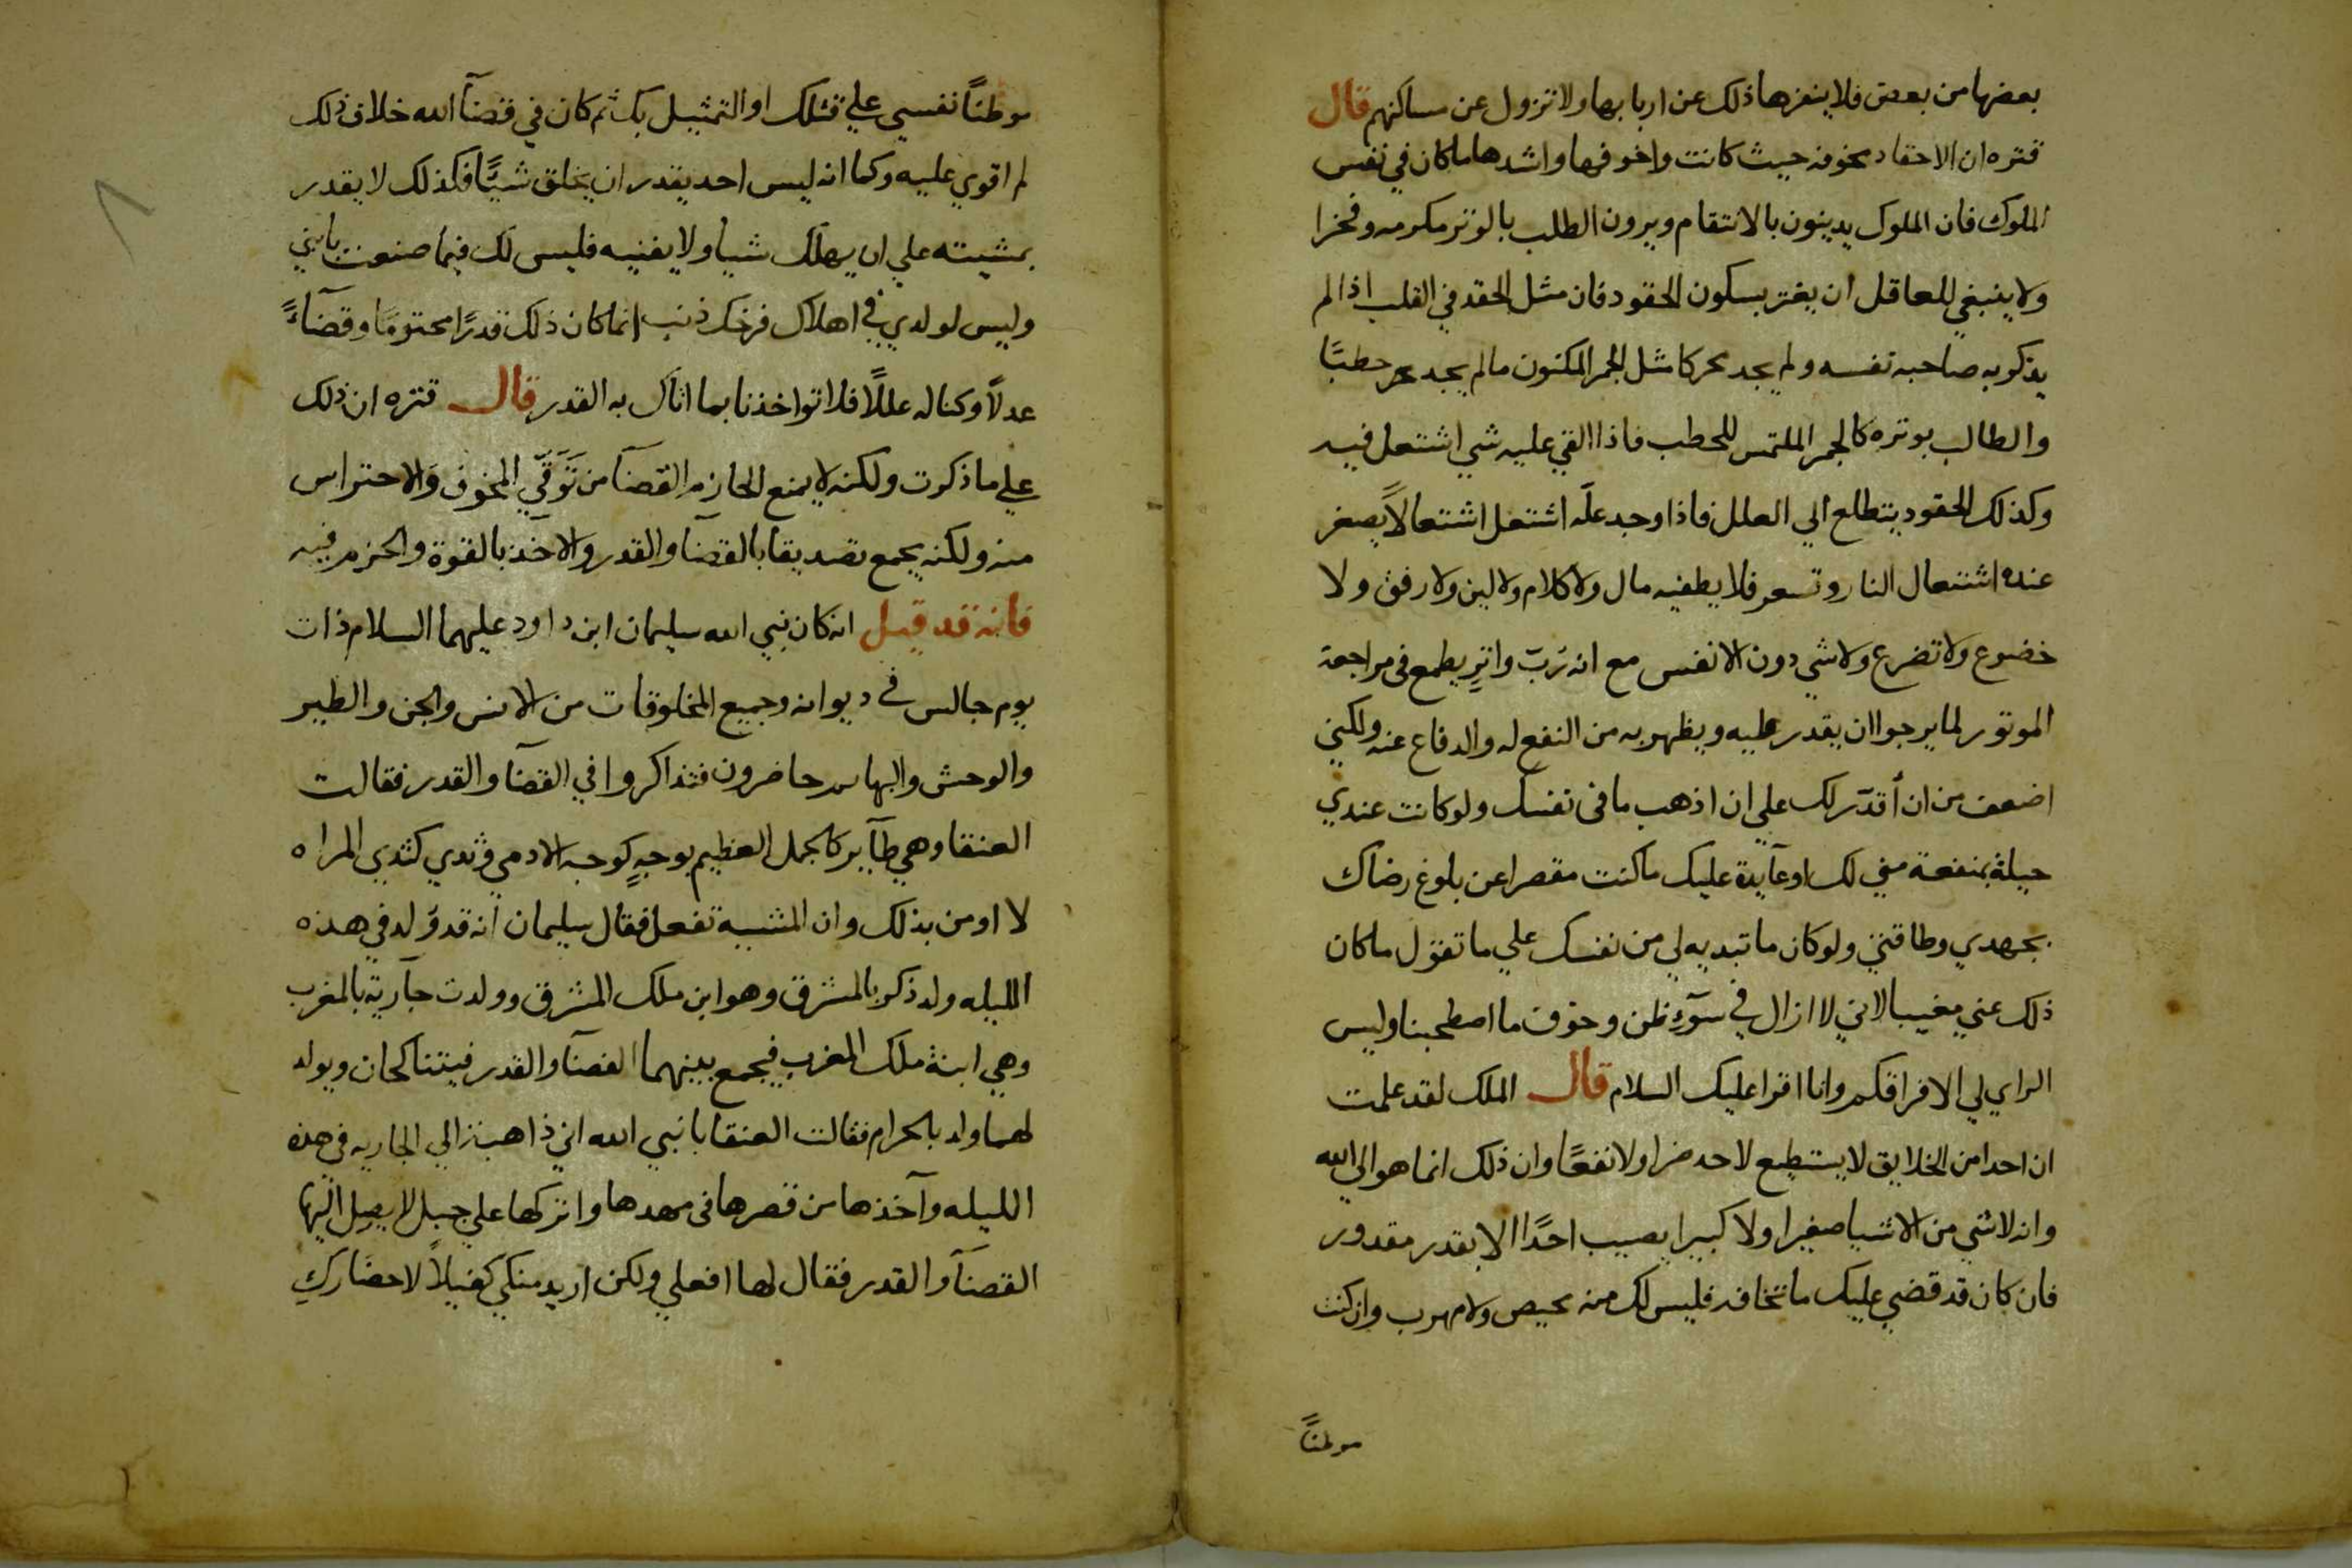 بعضها من بعض فلا ينفرها ذلك عن اربابها ولا تزول عن مساكنهم قال
قتره ان الاحقاد مخوفه حيث كانت واخوفها واشدها ما كان في نفس
الملوك فان الملوك يدينون بالانتقام ويرون الطلب بالوتر مكرمه وفخرا
ولا ينبغي للعاقل ان يغتر بسكون الحقود فان مثل الحقد في القلب اذا لم
يذكر به صاحبه نفسه ولم يجد محركا مثل الجمر المكنون ما لم يجد حطبًا
والطالب بوتره كالجمر الملتمس للحطب فاذا القي عليه شي اشتعل فيه
وكذلك الحقود يتطلع الي العلل فاذا وجد علّه اشتعل اشتعالاً يصغر
عنده اشتعال النار وتسعر فلا يطفيه مال ولا كلام ولا لين ولا رفق ولا
خضوع ولا تضرع ولا شي دون الانفس مع انه رُبّ واترٍ يطمع في مراجعة
الموتور لما يرجوا ان يقدر عليه ويظهر به من النفع له والدفاع عنه ولكني
اضعف من ان أقدر لك علي ان اذهب ما في نفسك ولو كانت عندي
حيلة بمنفعة مني لك او عآيدة عليك ما كنت مقصرا عن بلوغ رضاك
بجهدي وطاقتي ولو كان ما تبديه لي من نفسك علي ما تقول ما كان
ذلك عني مغيبا لاني لا ازال في سوٓء ظن وخوف ما اصطحبنا وليس
الراي لي الا فراقكم وانا اقرا عليك السلام قال الملك لقد علمت
ان احدا من الخلايق لا يستطيع لاحد ضرا ولا نفعًا وان ذلك انما هو الي الله
وانه لا شي من الاشيا صغيرا ولا كبيرا يصيب احدًا الا بقدر مقدور
فان كان قد قضي عليك ما تخافه فليس لك منه محيص ولا مهرب وان كنت
موطنًا
موطنًا نفسي علي قتلك او التمثيل بك ثم كان في قضآ الله خلاف ذلك
لم اقوي عليه وكما انه ليس احد يقدر ان يخلق شيًا فكذلك لا يقدر
بمشيته علي ان يهلك شيا ولا يفنيه فليس لك فيما صنعت بابني
وليس لولدي في اهلاك فرخك ذنب انما كان ذلك قدرًا محتومًا وقضآءً
عدلاً وكنا له عللاً فلا تواخذنا بما اتاك به القدر قال قتره ان ذلك
علي ما ذكرت ولكنه لا يمنع الحازم القضآ من تَوَقّي المخوف والاحتراس
منه ولكنه يجمع تصديقا بالقضآ والقدر والاخذ بالقوة والحزم فيه
فانه قد قيل انه كان نبي الله سليمان ابن داود عليهما السلام ذات
يوم جالس في ديوانه وجميع المخلوقات من الانس والجن والطير
والوحش والبهايم حاضرون فتذاكروا في القضآ والقدر فقالت
العنقا وهي طآير كالجمل العظيم بوجهٍ كوجه الادمي وثدي كثدي المراه
لا اومن بذلك وان المشيه تفعل فقال سليمان انه قد وُلد في هذه
الليله ولد ذكر بالمشرق وهو ابن ملك المشرق وولدت جآرية بالمغرب
وهي ابنة ملك المغرب فيجمع بينهما القضآ والقدر فيتناكحان ويولد
لهما ولد بالحرام فقالت العنقا يا نبي الله اني ذاهبة الي الجاريه في هذه
الليله وآخذها من قصرها في مهدها واتركها علي جبل لا يصل اليها
القضآ والقدر فقال لها افعلي ولكن اريد منكي كفيلاً لاحضارك